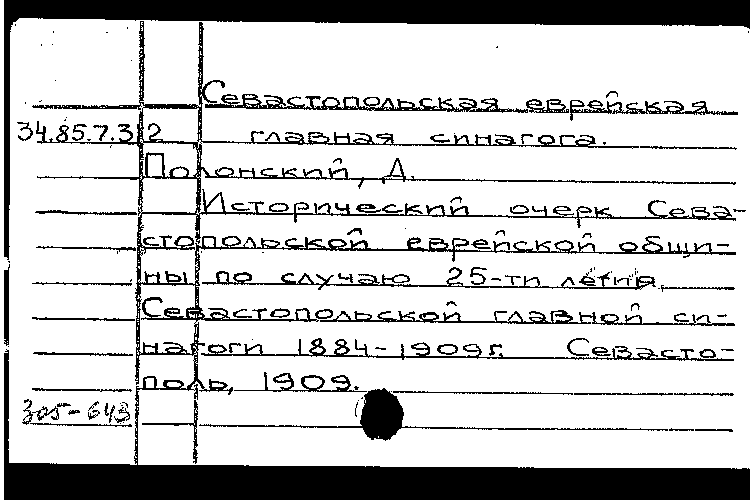 Севастопольская еврейская
34.85.7.3 2 главная синагога.
Полонский, Д.
Исторический очерк Сева-
стопольской еврейской общи-
ны по случаю 25-ти летия,
Севастопольской главной си-
нагоги 1884-1909г. Севасто-
поль, 1909.
305-643